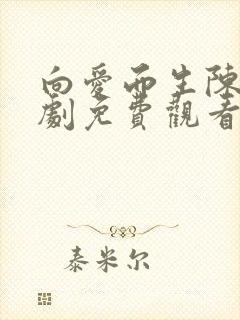 向愛而生陳
劇免費觀看
泰米尔